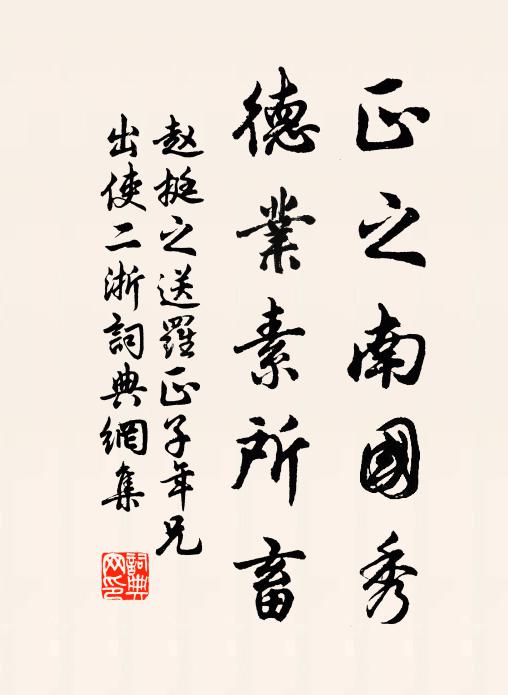 正之南國秀
德業素所畜
赵挺之送羅正子年兄
出使二浙詞典網集
詞典
网印